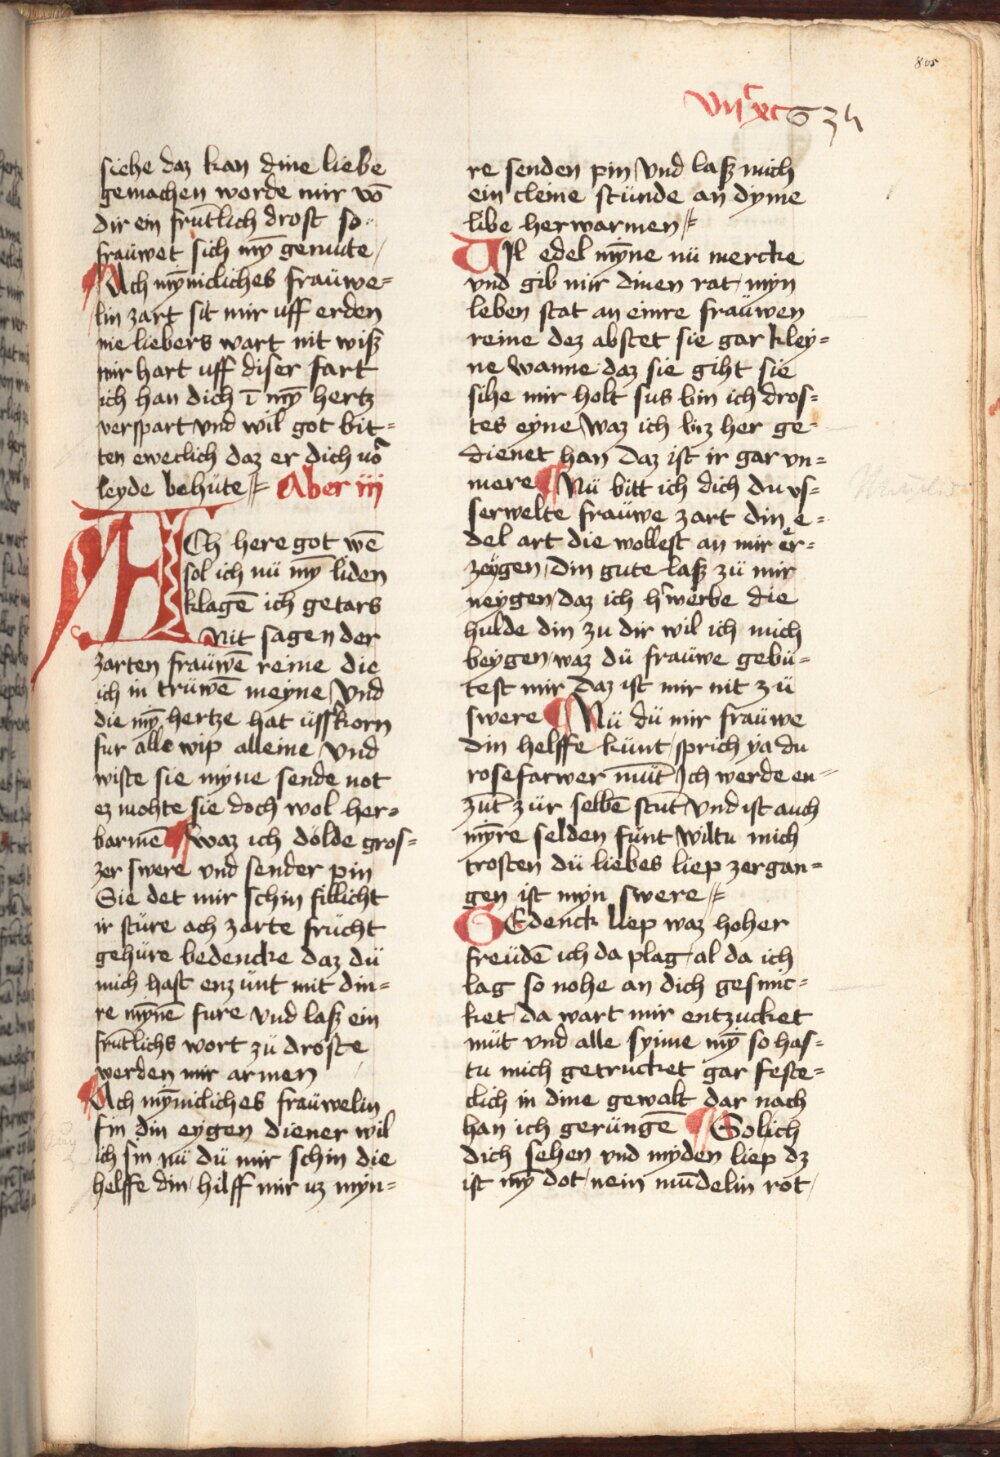 805
vii^c xc 634
siehe daz kan dine liebe
gemachen worde mir vō
dir ein frūtlich drost so
frauwet sich mȳ gemute /
Ach mȳnicliches frauwe=
lin zart sit mir uff erden
nie liebers wart nit wiß
mir hart uff diser fart
ich han dich ī mȳ hertz
verspart vnd wil got bit=
ten eweclich daz er dich vō
leyde behüte //= Aber iij
ACh here got wē
sol ich nü mȳ liden
klagē ich getars
Nit sagen der
zarten frauwē reine die
ich in trüwē meyne / Vnd
die mȳ hertze hat üsskorn
fur alle wip alleine / vnd
wiste sie myne sende not
ez mohte sie doch wol her=
barmē ¶ waz ich dolde gros=
zer swere vnd sender pin
Sie det mir schin fillicht
ir sture ach zarte frücht
gehüre bedencke daz dü
mich hast enzünt mit din=
re mȳnē fure Vnd laß ein
frūtlichs wort zü droste
werden mir armen
Ach mȳnicliches frauwelin
sin din eygen diener wil
ich sin nü dü mir schin die
helffe din / hilff mir uz myn=
re senden pin / Vnd laß mich
ein cleine stünde an dyme
libe herwarmen //=
Vil edel mȳne nü mercke
vnd gib mir dinen rat / myn
leben stat an einre frauwen
reine dez abstet sie gar kley=
ne wanne daz sie giht sie
sihe mir holt sus bin ich dros=
tes eyne / waz ich biz her ge=
dienet han daz ist ir gar vn=
mere ¶ Nü bitt ich dich du vs=
serwelte frauwe zart din e=
del art die wollest an mir er=
zeygen / din gute laß zü mir
neygen / daz ich h'werbe die
hulde din zu dir wil ich mich
beygen / waz dü frauwe gebü=
test mir daz ist mir nit zü
swere ¶ Nü dü mir frauwe
din helffe künt / sprich ya du
rosefarwer mūt Ich werde en=
zūt zür selbē stūt Vnd ist auch
mȳre selden funt / wiltu mich
trosten dü liebes liep zergan=
gen ist myn swere //=
GEdenck liep waz hoher
freüdē ich da plag / al da ich
lag so nohe an dich gesmic=
ket / da wart mir entzucket
müt vnd alle syinne mȳ so has=
tu mich getrucket gar feste=
clich in dine gewalt dar nach
han ich gerüngē ¶ Solich
dich sehen vnd myden liep dz
ist mȳ dot / nein mūdelin rot /